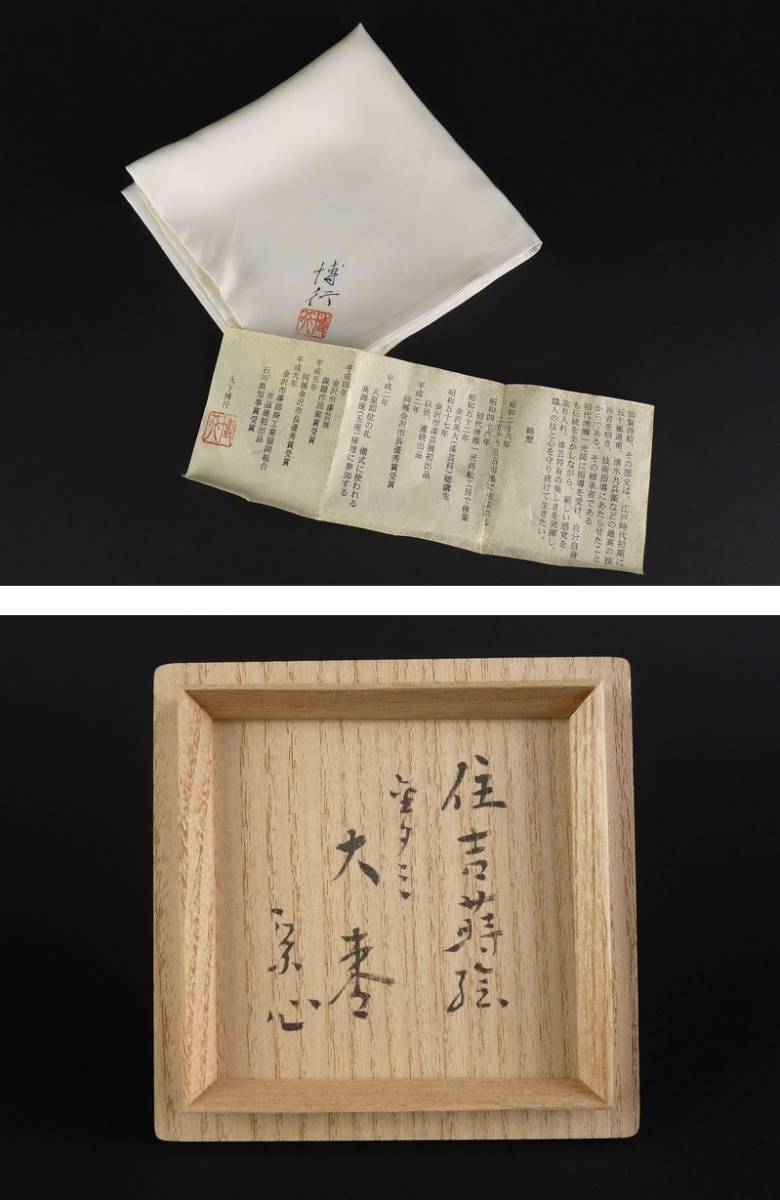 博行
博行
加賀蒔絵、その歴史は、江戸時代初期に
五十嵐道甫、清水九兵衛などの最高の技
術者を招き、技術指導にあたらせたこと
からである。その継承者である
初代清瀬一光師に指導を受け、自分自身
も伝統を生かしながら、新しい感覚を
取り入れ、漆芸特有の美しさを発揮し、
職人の技と心を守り続けて生きたい。
略歴
昭和二十九年
石川県に生まれる
昭和四十六年
初代清瀬一光蒔絵工房で修業
昭和五十二年
金沢美大(漆芸科)聴講生
昭和五十七年
金沢市漆芸展初出品
以後、連続出品
平成一年
同展金沢市長優秀賞受賞
平成二年
天皇即位の礼 儀式に使われる
高御座(玉座)修理に参加する
平成四年
金沢市漆芸展
課題作図案賞受賞
平成五年
同展金沢市長優秀賞受賞
平成九年
金沢市漆器商工業協同組合
作品展初出品
石川県知事賞受賞
大下博行
博行
住吉蒔絵
大棗
宗心